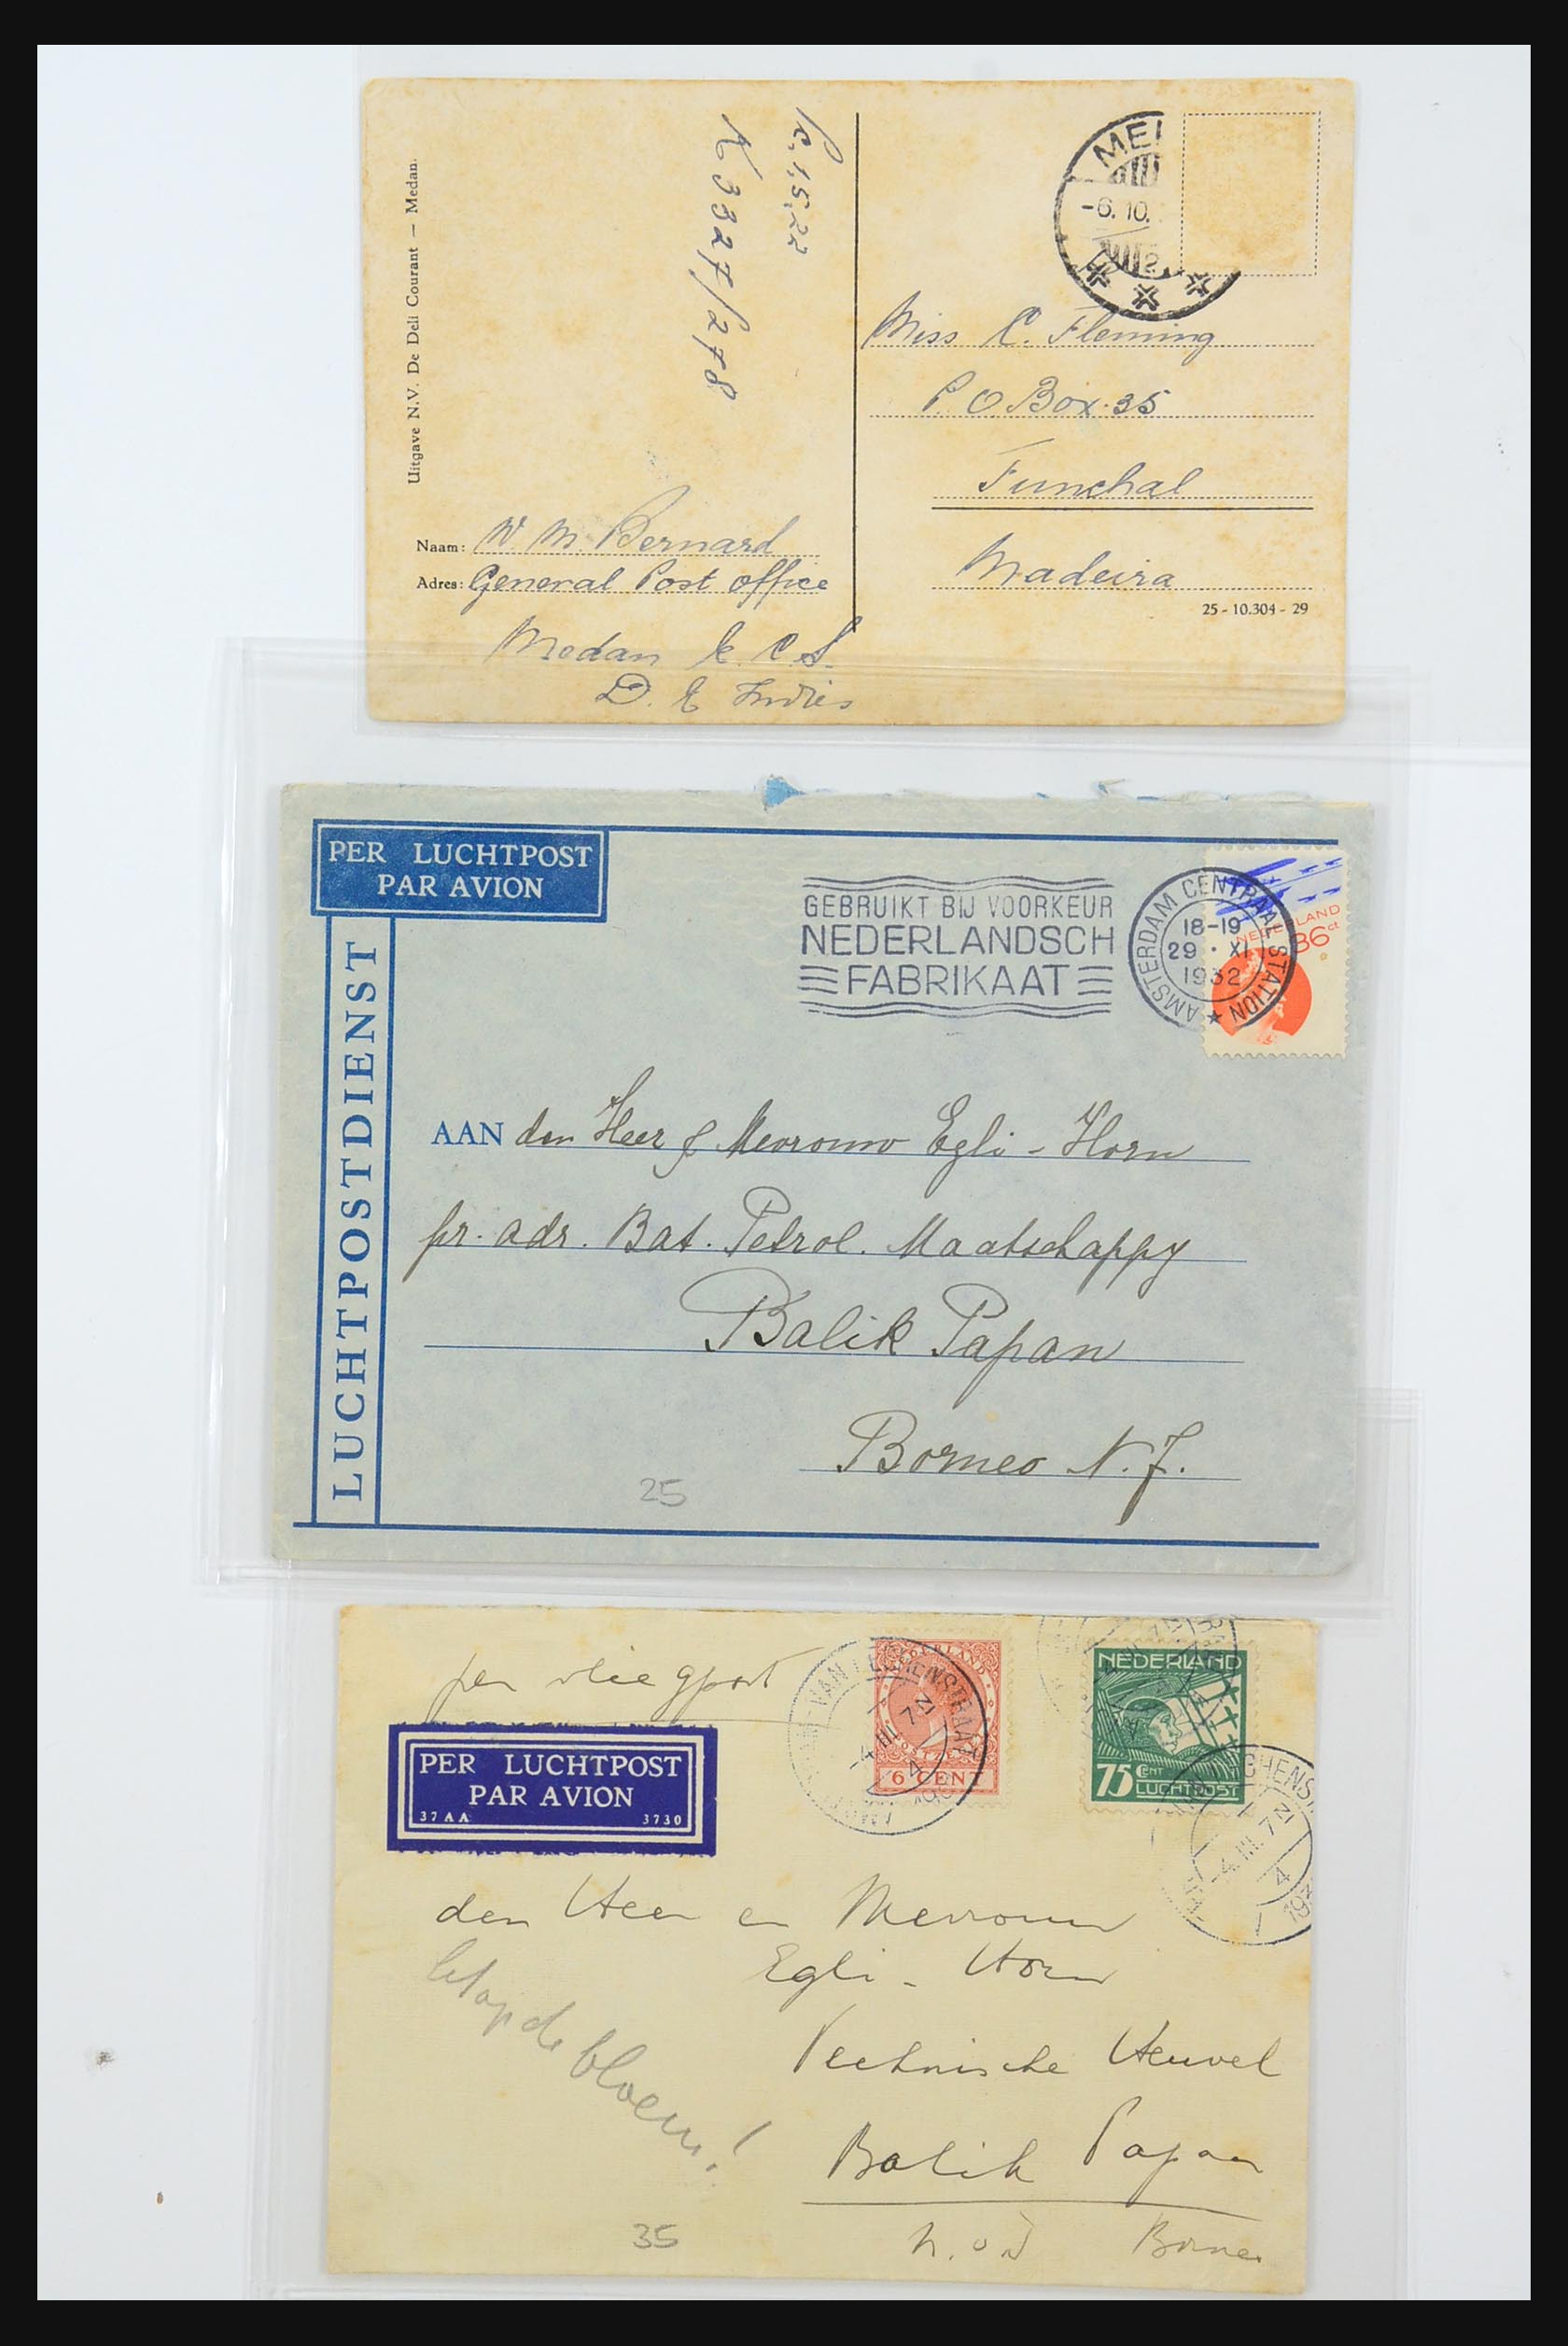 Uitgave N.V. De Deli Courant — Medan.
K 3327/278
MEI
-6.10.
2
Miss C. Fleming
P O Box. 35
Funchal
Madeira
25 - 10.304 - 29
Naam: W. M. Bernard
Adres: General Post office
Medan
D. E Indies
PER LUCHTPOST
PAR AVION
LUCHTPOSTDIENST
GEBRUIKT BIJ VOORKEUR
NEDERLANDSCH
FABRIKAAT
AMSTERDAM CENTRAAL STATION
18-19
29 · XI
1932
NEDERLAND
36 ct
AAN den Heer & Mevrouw Egli - Horn
pr. adr. Bat. Petrol. Maatschappy
Balik Papan
Borneo N. J.
25
per vliegpost
6 CENT
NEDERLAND
75 CENT
LUCHTPOST
-4.III.7N
4
4.III.7N
4
PER LUCHTPOST
PAR AVION
37AA 3730
den Heer en Mevrouw
Egli - Horn
let op de bloem!
Technische Heuvel
Balik Papan
N. O I Borneo
35